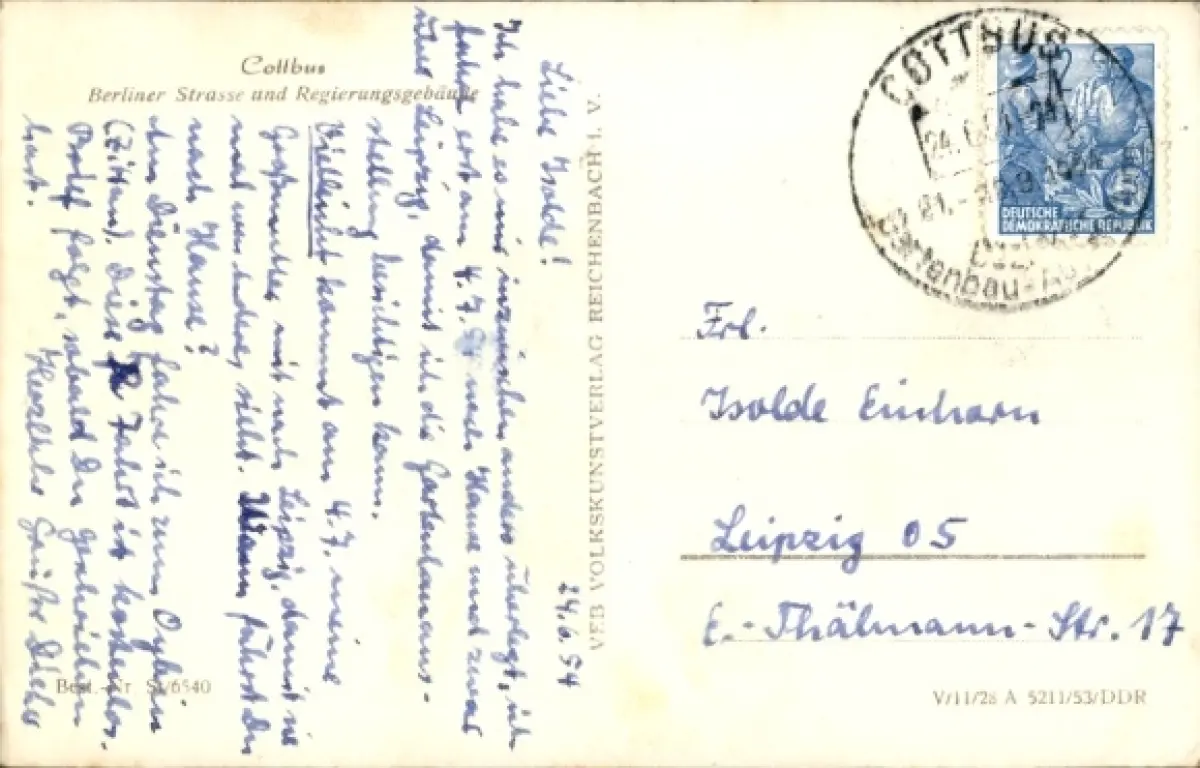 Cottbus
Berliner Strasse und Regierungsgebäude
24.6.54
Liebe Isolde!
Ich habe es mir inzwischen anders überlegt, ich
fahre erst am 4.7. nach Hause und zwar
über Leipzig, damit ich die Gartenbauaus-
stellung besichtigen kann.
Vielleicht kannst am 4.7. meine
Großmutter mit nach Leipzig, damit sie
mal was anderes sieht. Wann fährst Du
nach Hause?
Am Dienstag fahre ich zum Oybin
(Zittau). Diese Fahrt ist kostenlos.
Brief folgt, sobald Du geschrieben
hast. Herzliche Grüße Dieter
Best.-Nr. St/6540
VEB VOLKSKUNSTVERLAG REICHENBACH I. V.
COTTBUS
24.6.
Gartenbau-
DEUTSCHE
DEMOKRATISCHE REPUBLIK
Frl.
Isolde Einhorn
Leipzig O5
E.-Thälmann-Str. 17
V/11/28 A 5211/53/DDR